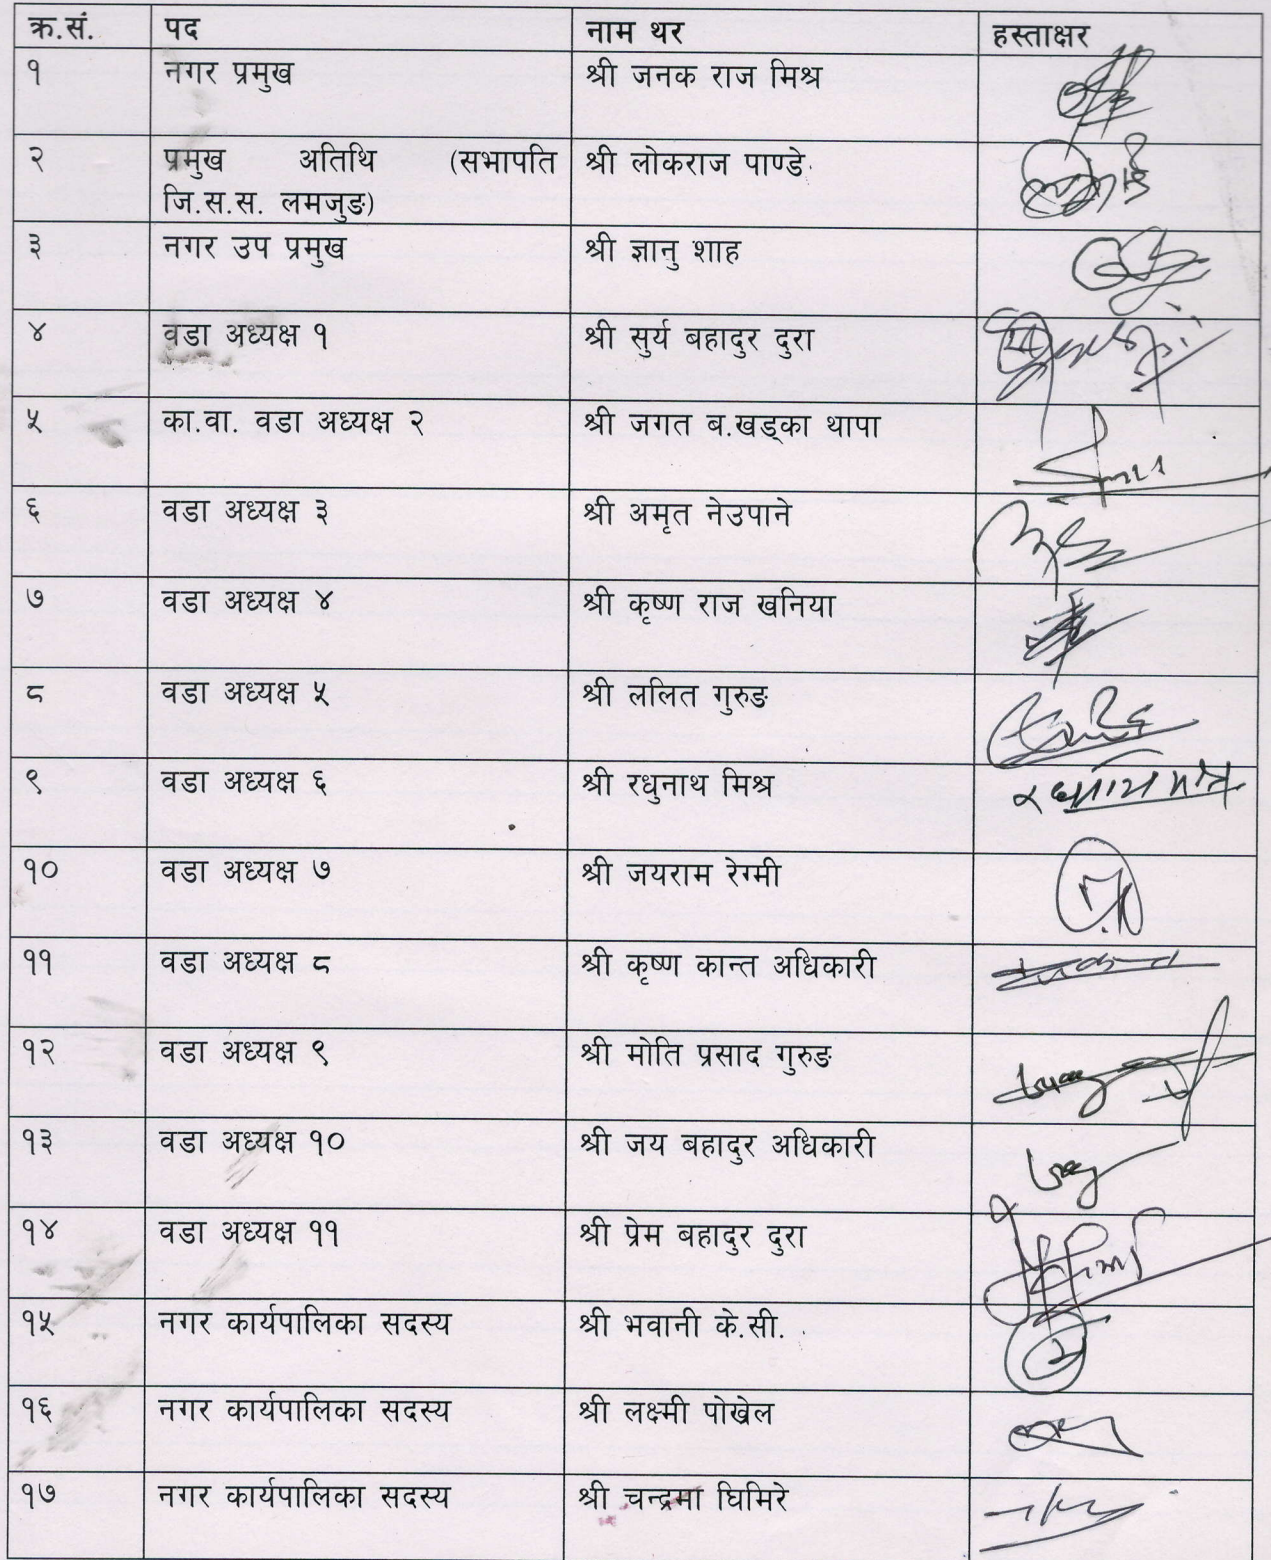 क्र.सं. पद नाम थर हस्ताक्षर
१ नगर प्रमुख श्री जनक राज मिश्र
२ प्रमुख अतिथि (सभापति श्री लोकराज पाण्डे
जि.स.स. लमजुङ)
३ नगर उप प्रमुख श्री ज्ञानु शाह
४ वडा अध्यक्ष १ श्री सुर्य बहादुर दुरा
५ का.वा. वडा अध्यक्ष २ श्री जगत ब.खड्का थापा
६ वडा अध्यक्ष ३ श्री अमृत नेउपाने
७ वडा अध्यक्ष ४ श्री कृष्ण राज खनिया
८ वडा अध्यक्ष ५ श्री ललित गुरुङ
९ वडा अध्यक्ष ६ श्री रधुनाथ मिश्र
१० वडा अध्यक्ष ७ श्री जयराम रेग्मी
११ वडा अध्यक्ष ८ श्री कृष्ण कान्त अधिकारी
१२ वडा अध्यक्ष ९ श्री मोति प्रसाद गुरुङ
१३ वडा अध्यक्ष १० श्री जय बहादुर अधिकारी
१४ वडा अध्यक्ष ११ श्री प्रेम बहादुर दुरा
१५ नगर कार्यपालिका सदस्य श्री भवानी के.सी.
१६ नगर कार्यपालिका सदस्य श्री लक्ष्मी पोखेल
१७ नगर कार्यपालिका सदस्य श्री चन्द्रमा घिमिरे